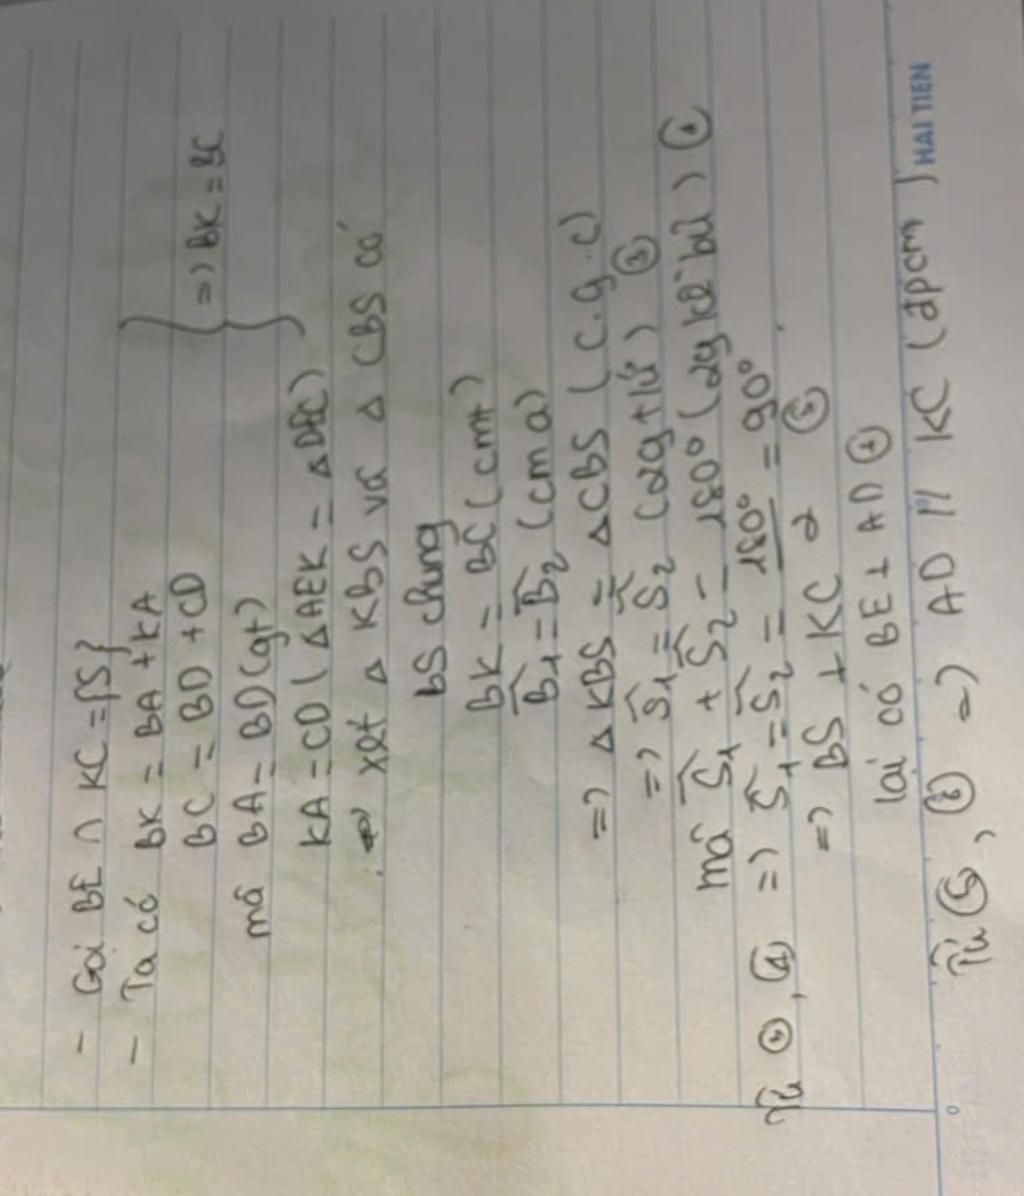 - Gọi BE ∩ KC = {S}
- Ta có BK = BA + KA
BC = BD + CD
mà BA = BD (gt)
KA = CD (Δ AEK = Δ DEC)
=> BK = BC
=> xét Δ KBS và Δ CBS có
BS chung
BK = BC (cmt)
B̂1 = B̂2 (cm a)
=> Δ KBS = Δ CBS (c.g.c)
=> Ŝ1 = Ŝ2 (2g tứ) ③
mà Ŝ1 + Ŝ2 = 180° (2g kề bù) ④
Từ ③, ④ => Ŝ1 = Ŝ2 = 180° = 90°
=> BS ⊥ KC ⑤
lại có BE ⊥ AD
Từ ⑤, => AD // KC (đpcm)
HAI TIEN
0